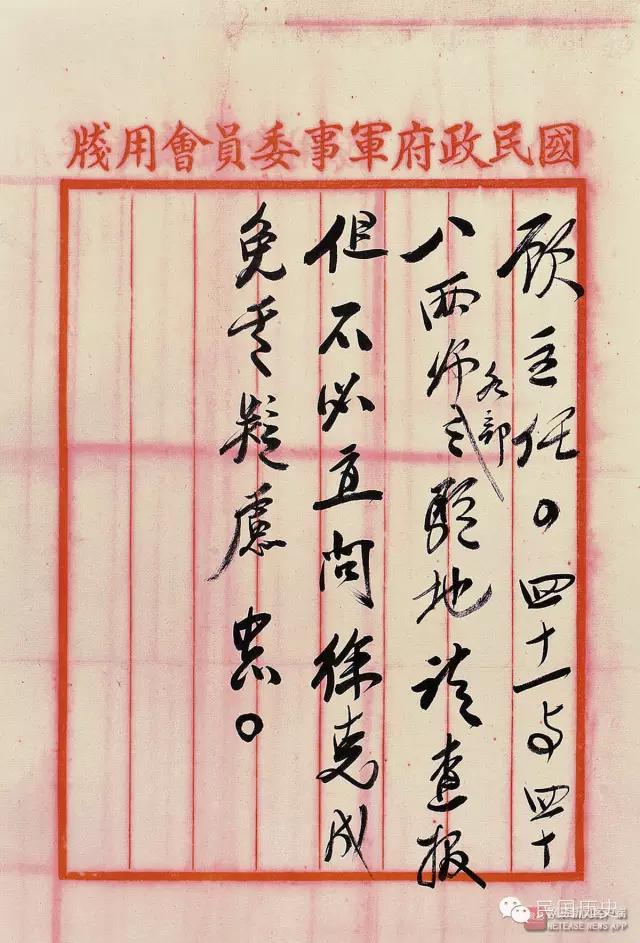 國民政府軍事委員會用牋
顾主任。四十一与四十
八两师各部駐地请查报
但不必直问徐克成
免其疑慮 中正。
民国历史
NETEASE NEWS APP